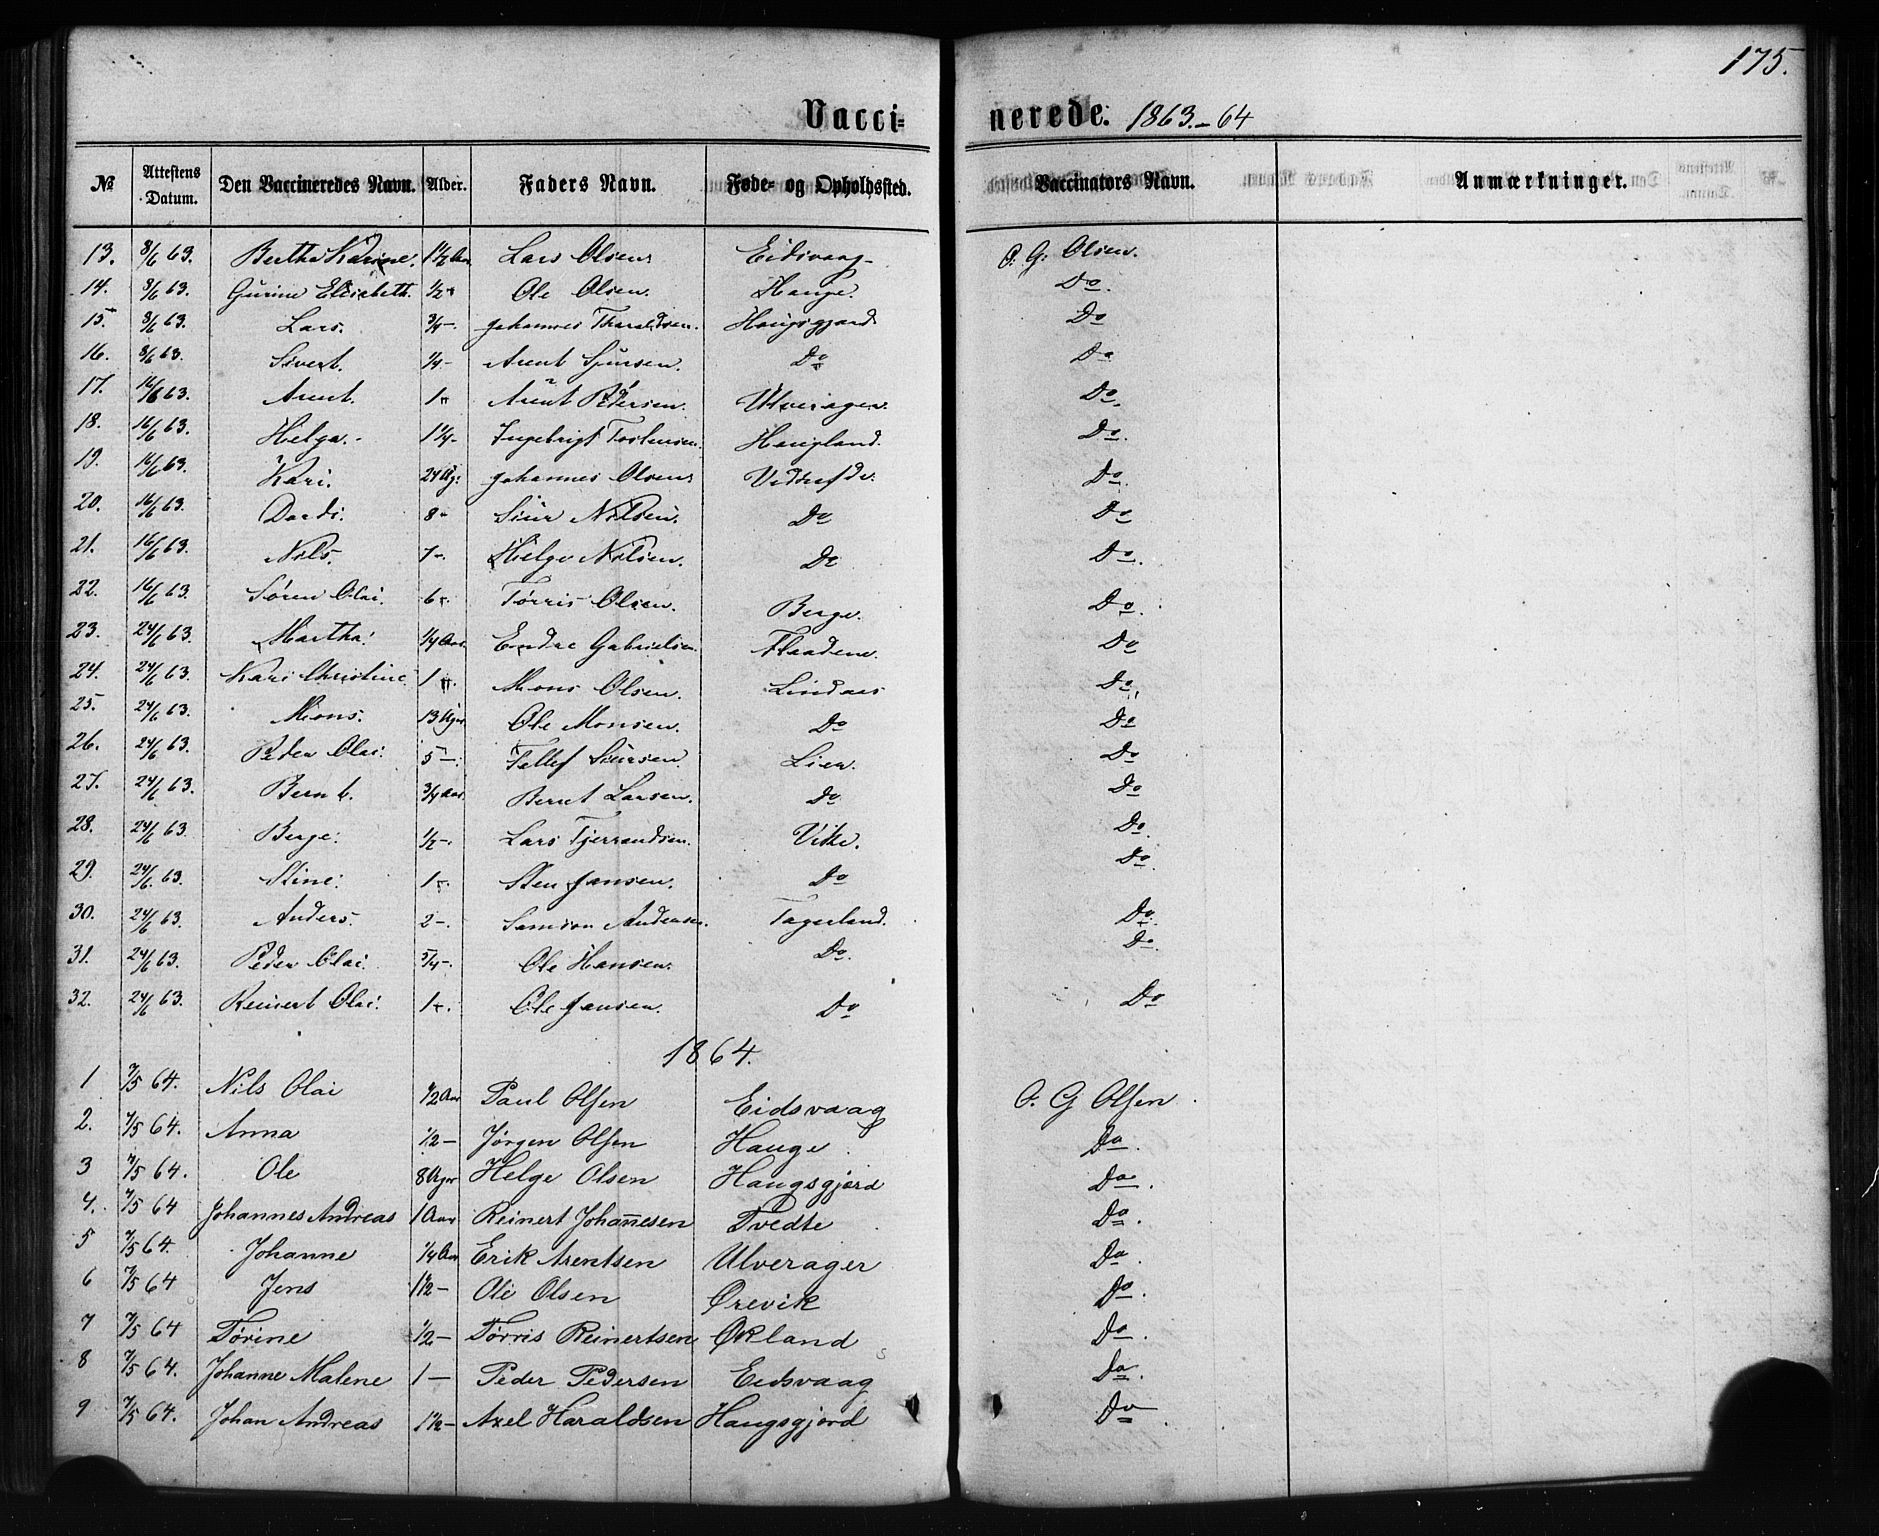 175.
Vaccinerede. 1863.-64
№ Attestens Datum. Den Vaccineredes Navn. Alder. Faders Navn. Føde- og Opholdssted. Vaccinators Navn. Anmærkninger.
13. 8/6 63. Bertha Karine. 1 1/2 Aar. Lars Olsen. Eidsvaag O. G. Olsen.
14. 8/6 63. Gurine Elisabeth. 1/2 - Ole Olsen. Hauge. Do.
15. 8/6 63. Lars. 3/4 - Johannes Tharaldsen. Haugsgjord Do
16. 8/6 63. Sivert. 1/4 - Arent Sjursen. Do Do
17. 16/6 63. Arent. 1 - Arent Pedersen. Ulverager. Do.
18. 16/6 63. Helga. 1 1/4 - Ingebrigt Torstensen. Haugland. Do.
19. 16/6 63. Kari. 24 Ug: Johannes Olsen. Do.
20. 16/6 63. Dordi. 8 - Siur Nilsen. Do Do
21. 16/6 63. Nils. 7 - Helge Nilsen. Do Do.
22. 16/6 63. Søren Olai. 6 - Tørris Olsen. Berge. Do.
23. 24/6 63. Martha. 1/4 Aar. Endre Gabrielsen. Flaadene. Do
24. 24/6 63. Kari Christine 1 - Mons Olsen. Lindaas Do
25. 24/6 63. Mons. 13 Uger Ole Monsen. Do Do
26. 24/6 63. Peder Olai. 5 - Tellef Siursen. Lien. Do
27. 24/6 63. Bernt. 3/4 Aar. Bernt Larsen. Do Do
28. 24/6 63. Berge. 1/2 - Lars Tjerrandsen. Vike. Do
29. 24/6 63. Stine. 1 - Sten Jansen. Do Do
30. 24/6 63. Anders. 2 - Samson Andersen. Tagerland. Do
31. 24/6 63. Peder Olai. 5/4 - Ole Hansen. Do. Do.
32. 24/6 63. Reinert Olai. 1 - Ole Jansen. Do Do
1864.
1 7/5 64. Nils Olai 1/2 Aar Paul Olsen Eidsvaag O. G Olsen.
2. 7/5 64. Anna 1/2 - Jørgen Olsen Hauge. Do.
3 7/5 64. Ole 8 Uger Helge Olsen Haugsgjord Do.
4. 7/5 64 Johannes Andreas 1 Aar Reinert Johan̄esen Tvedte Do.
5 7/5 64. Johanne 1/4 Aar Erik Arentsen Ulverager Do.
6 7/5 64 Jens 1 1/2 - Ole Olsen Ørevik Do.
7 7/5 64 Tørine 1/2 - Tørris Reinertsen Økland Do.
8 7/5 64. Johanne Malene 1 - Peder Pedersen Eidsvaag Do.
9 7/5 64. Johan Andreas 1 1/2 - Axel Haraldsen Haugsgjord Do